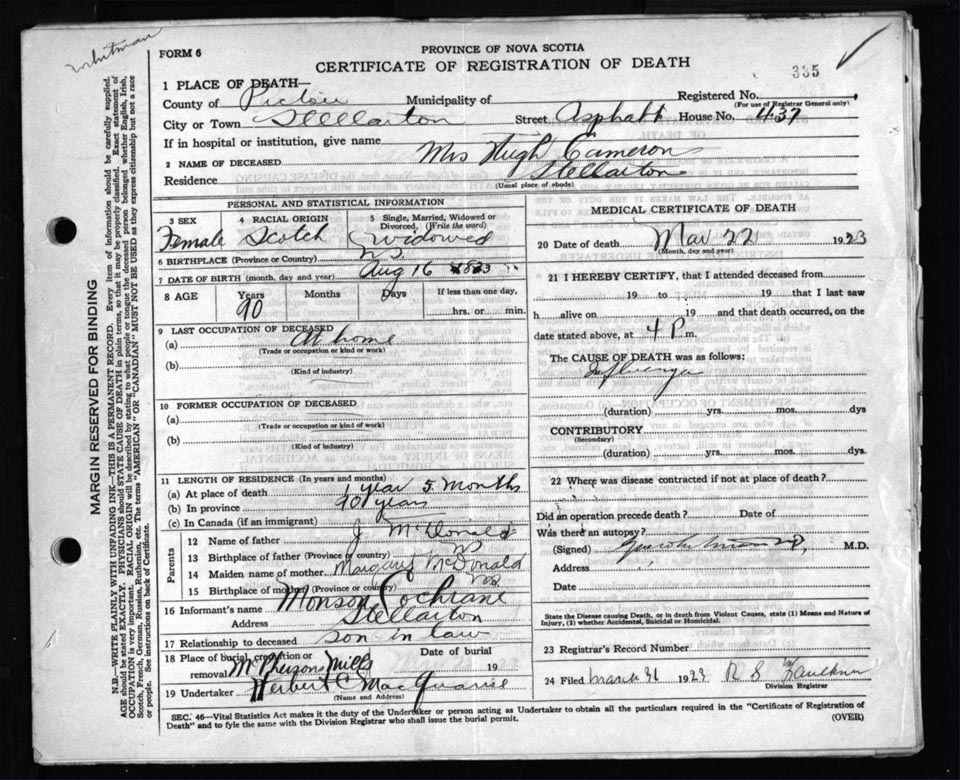 Whitman
FORM 6
PROVINCE OF NOVA SCOTIA
CERTIFICATE OF REGISTRATION OF DEATH
335
1 PLACE OF DEATH—
County of Pictou Municipality of Registered No.
(For use of Registrar General only)
City or Town Stellarton Street Asphalt House No. 437
If in hospital or institution, give name
2 NAME OF DECEASED Mrs Hugh Cameron
Residence Stellarton
(Usual place of abode)
PERSONAL AND STATISTICAL INFORMATION
3 SEX Female
4 RACIAL ORIGIN Scotch
5 Single, Married, Widowed or Divorced. (Write the word) Widowed
6 BIRTHPLACE (Province or Country) NS
7 DATE OF BIRTH (month, day and year) Aug 16
8 AGE Years 90 Months Days If less than one day, hrs. or min.
9 LAST OCCUPATION OF DECEASED
(a) At home
(Trade or occupation or kind or work)
(b)
(Kind of industry)
10 FORMER OCCUPATION OF DECEASED
(a)
(Trade or occupation or kind or work)
(b)
(Kind of industry)
11 LENGTH OF RESIDENCE (In years and months)
(a) At place of death 1 year 5 months
(b) In province 90 years
(c) In Canada (if an immigrant)
Parents
12 Name of father J McDonald
13 Birthplace of father (Province or country) NS
14 Maiden name of mother Margaret McDonald
15 Birthplace of mother (Province or country) NS
16 Informant's name Monson Cochrane
Address Stellarton
17 Relationship to deceased son in law
18 Place of burial, cremation or removal McPhersons Mills Date of burial 19
19 Undertaker Herbert C MacQuarrie
(Name and Address)
MEDICAL CERTIFICATE OF DEATH
20 Date of death Mar 22 1923
(Month, day and year)
21 I HEREBY CERTIFY, that I attended deceased from
19 to 19 that I last saw
h alive on 19 and that death occurred, on the
date stated above, at 4 P. m.
The CAUSE OF DEATH was as follows:
Influenza
(duration) yrs. mos. dys
CONTRIBUTORY
(Secondary)
(duration) yrs. mos. dys.
22 Where was disease contracted if not at place of death?
Did an operation precede death? Date of
Was there an autopsy?
(Signed) M.D.
Address
Date
State the Disease causing Death, or in death from Violent Causes, state (1) Means and Nature of Injury, (2) whether Accidental, Suicidal or Homicidal.
23 Registrar's Record Number
24 Filed March 31 1923 R S Faulkner
Division Registrar
SEC. 46—Vital Statistics Act makes it the duty of the Undertaker or person acting as Undertaker to obtain all the particulars required in the "Certificate of Registration of
Death" and to fyle the same with the Division Registrar who shall issue the burial permit.
(OVER)
MARGIN RESERVED FOR BINDING
N.B.—WRITE PLAINLY WITH UNFADING INK—THIS IS A PERMANENT RECORD. Every item of information should be carefully supplied.
AGE should be stated EXACTLY. PHYSICIANS should STATE CAUSE OF DEATH in plain terms, so that it may be properly classified. Exact statement of
OCCUPATION is very important. RACIAL ORIGIN will be described by stating to what people or tongue the deceased person belonged whether English, Irish,
Scotch, French, German, Russian, Ruthenian, etc. The terms "AMERICAN" OR "CANADIAN" MUST NOT BE USED as they express citizenship but not a race
or people. See instructions on back of Certificate.